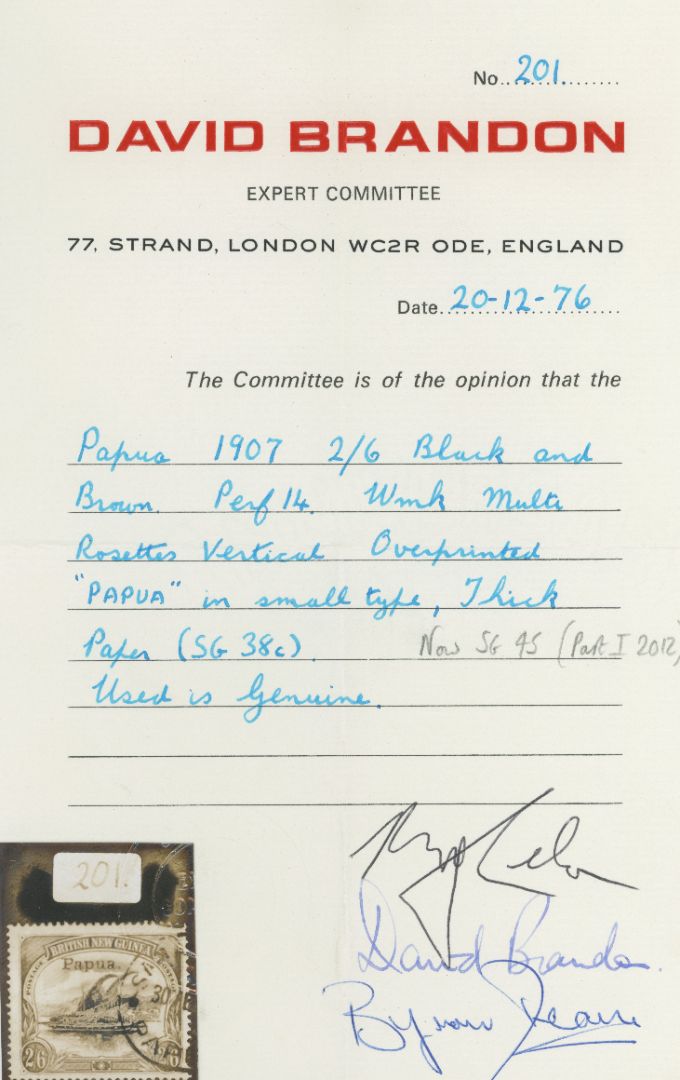 No. 201.
DAVID BRANDON
EXPERT COMMITTEE
77, STRAND, LONDON WC2R ODE, ENGLAND
Date 20-12-76
The Committee is of the opinion that the
Papua 1907 2/6 Black and
Brown. Perf 14. Wmk Multi
Rosettes Vertical Overprinted
"PAPUA" in small type, Thick
Paper (SG 38c). Now SG 45 (Part I 2012)
Used is Genuine.
201.
BRITISH NEW GUINEA
POSTAGE POSTAGE
Papua.
30
2/6
David Brandon.